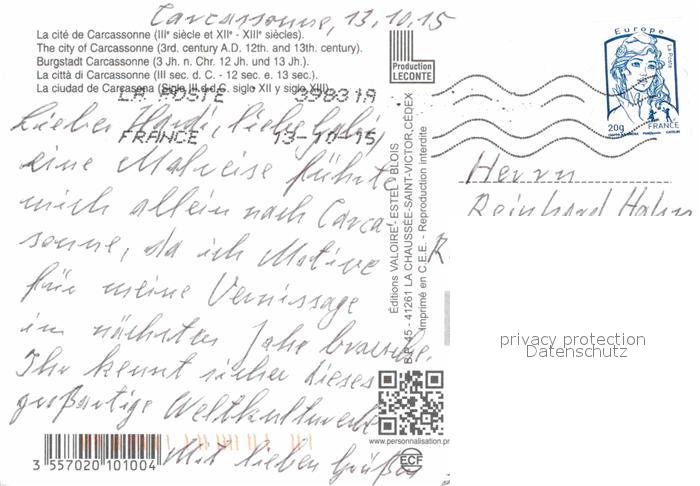 Carcassonne, 13.10.15
La cité de Carcassonne (IIIᵉ siècle et XIIᵉ - XIIIᵉ siècles).
The city of Carcassonne (3rd. century A.D. 12th. and 13th. century).
Burgstadt Carcassonne (3 Jh. n. Chr. 12 Jh. und 13 Jh.).
La città di Carcassonne (III sec. d. C. - 12 sec. e. 13 sec.).
La ciudad de Carcasona (Siglo III d.d.C. siglo XII y siglo XIII).
LA POSTE 39831A
FRANCE 13-10-15
Lieber
eine Malreise führte
mich allein nach Carca-
sonne, da ich Motive
für meine Vernissage
im nächsten Jahr brauche.
Ihr kennt sicher dieses
großartige Weltkulturerbe
Mit lieben Grüßen
3 557020 101004
Production
LECONTE
Éditions VALOIRE - ESTEL - BLOIS
B.P. 45 - 41261 LA CHAUSSÉE-SAINT-VICTOR CEDEX
Imprimé en C.E.E. - Reproduction interdite
www.personnalisation.pr
ECF
Europe
La Poste
20g
FRANCE
Herrn
Reinhard Hahn
R
privacy protection
Datenschutz